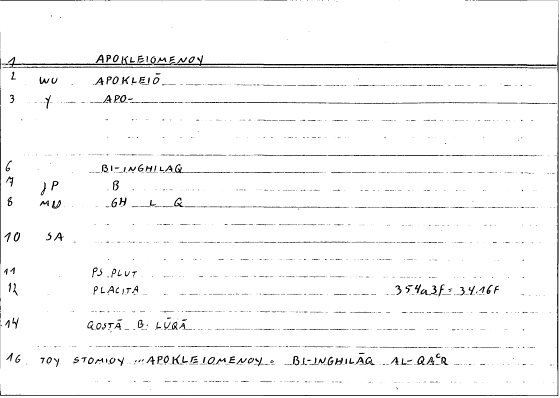 1 APOKLEIOMENOY
2 WU APOKLEIŌ
3 Y APO-
6 BI-INGHILAQ
7 JP B
8 MU GH L Q
10 SA
11 PS. PLUT
12 PLACITA 354a3f = 34.16f
14 QOSTĀ B. LŪQĀ
16 TOY STOMIOY ... APOKLEIOMENOY = BI-INGHILĀQ AL-QAʿR